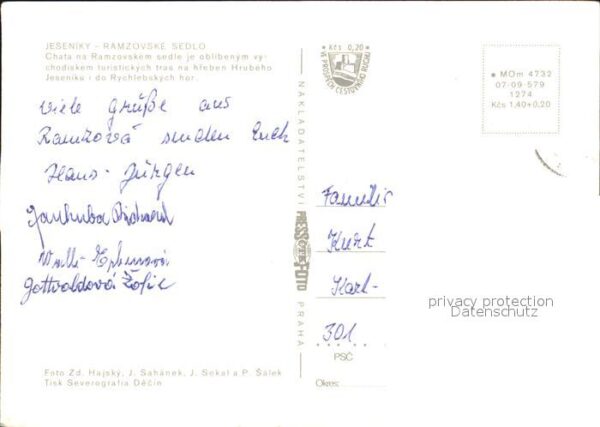 JESENÍKY - RAMZOVSKÉ SEDLO
Chata na Ramzovském sedle je oblíbeným vý-
chodiskem turistických tras na hřeben Hrubého
Jeseníku i do Rychlebských hor.
viele grüße aus
Ramzová senden Euch
Hans-Jürgen
Gottvaldová Žofie
Foto Zd. Hajský, J. Sahánek, J. Sekal a P. Šálek
Tisk Severografia Děčín
NAKLADATELSTVÍ
PRESSFOTO
PRAHA
Kčs 0,20
VE PROSPĚCH CESTOVNÍHO RUCHU
MOm 4732
07-09-579
1274
Kčs 1,40+0,20
Familie
Kurt
Karl-
301
PSČ
Okres:
privacy protection
Datenschutz